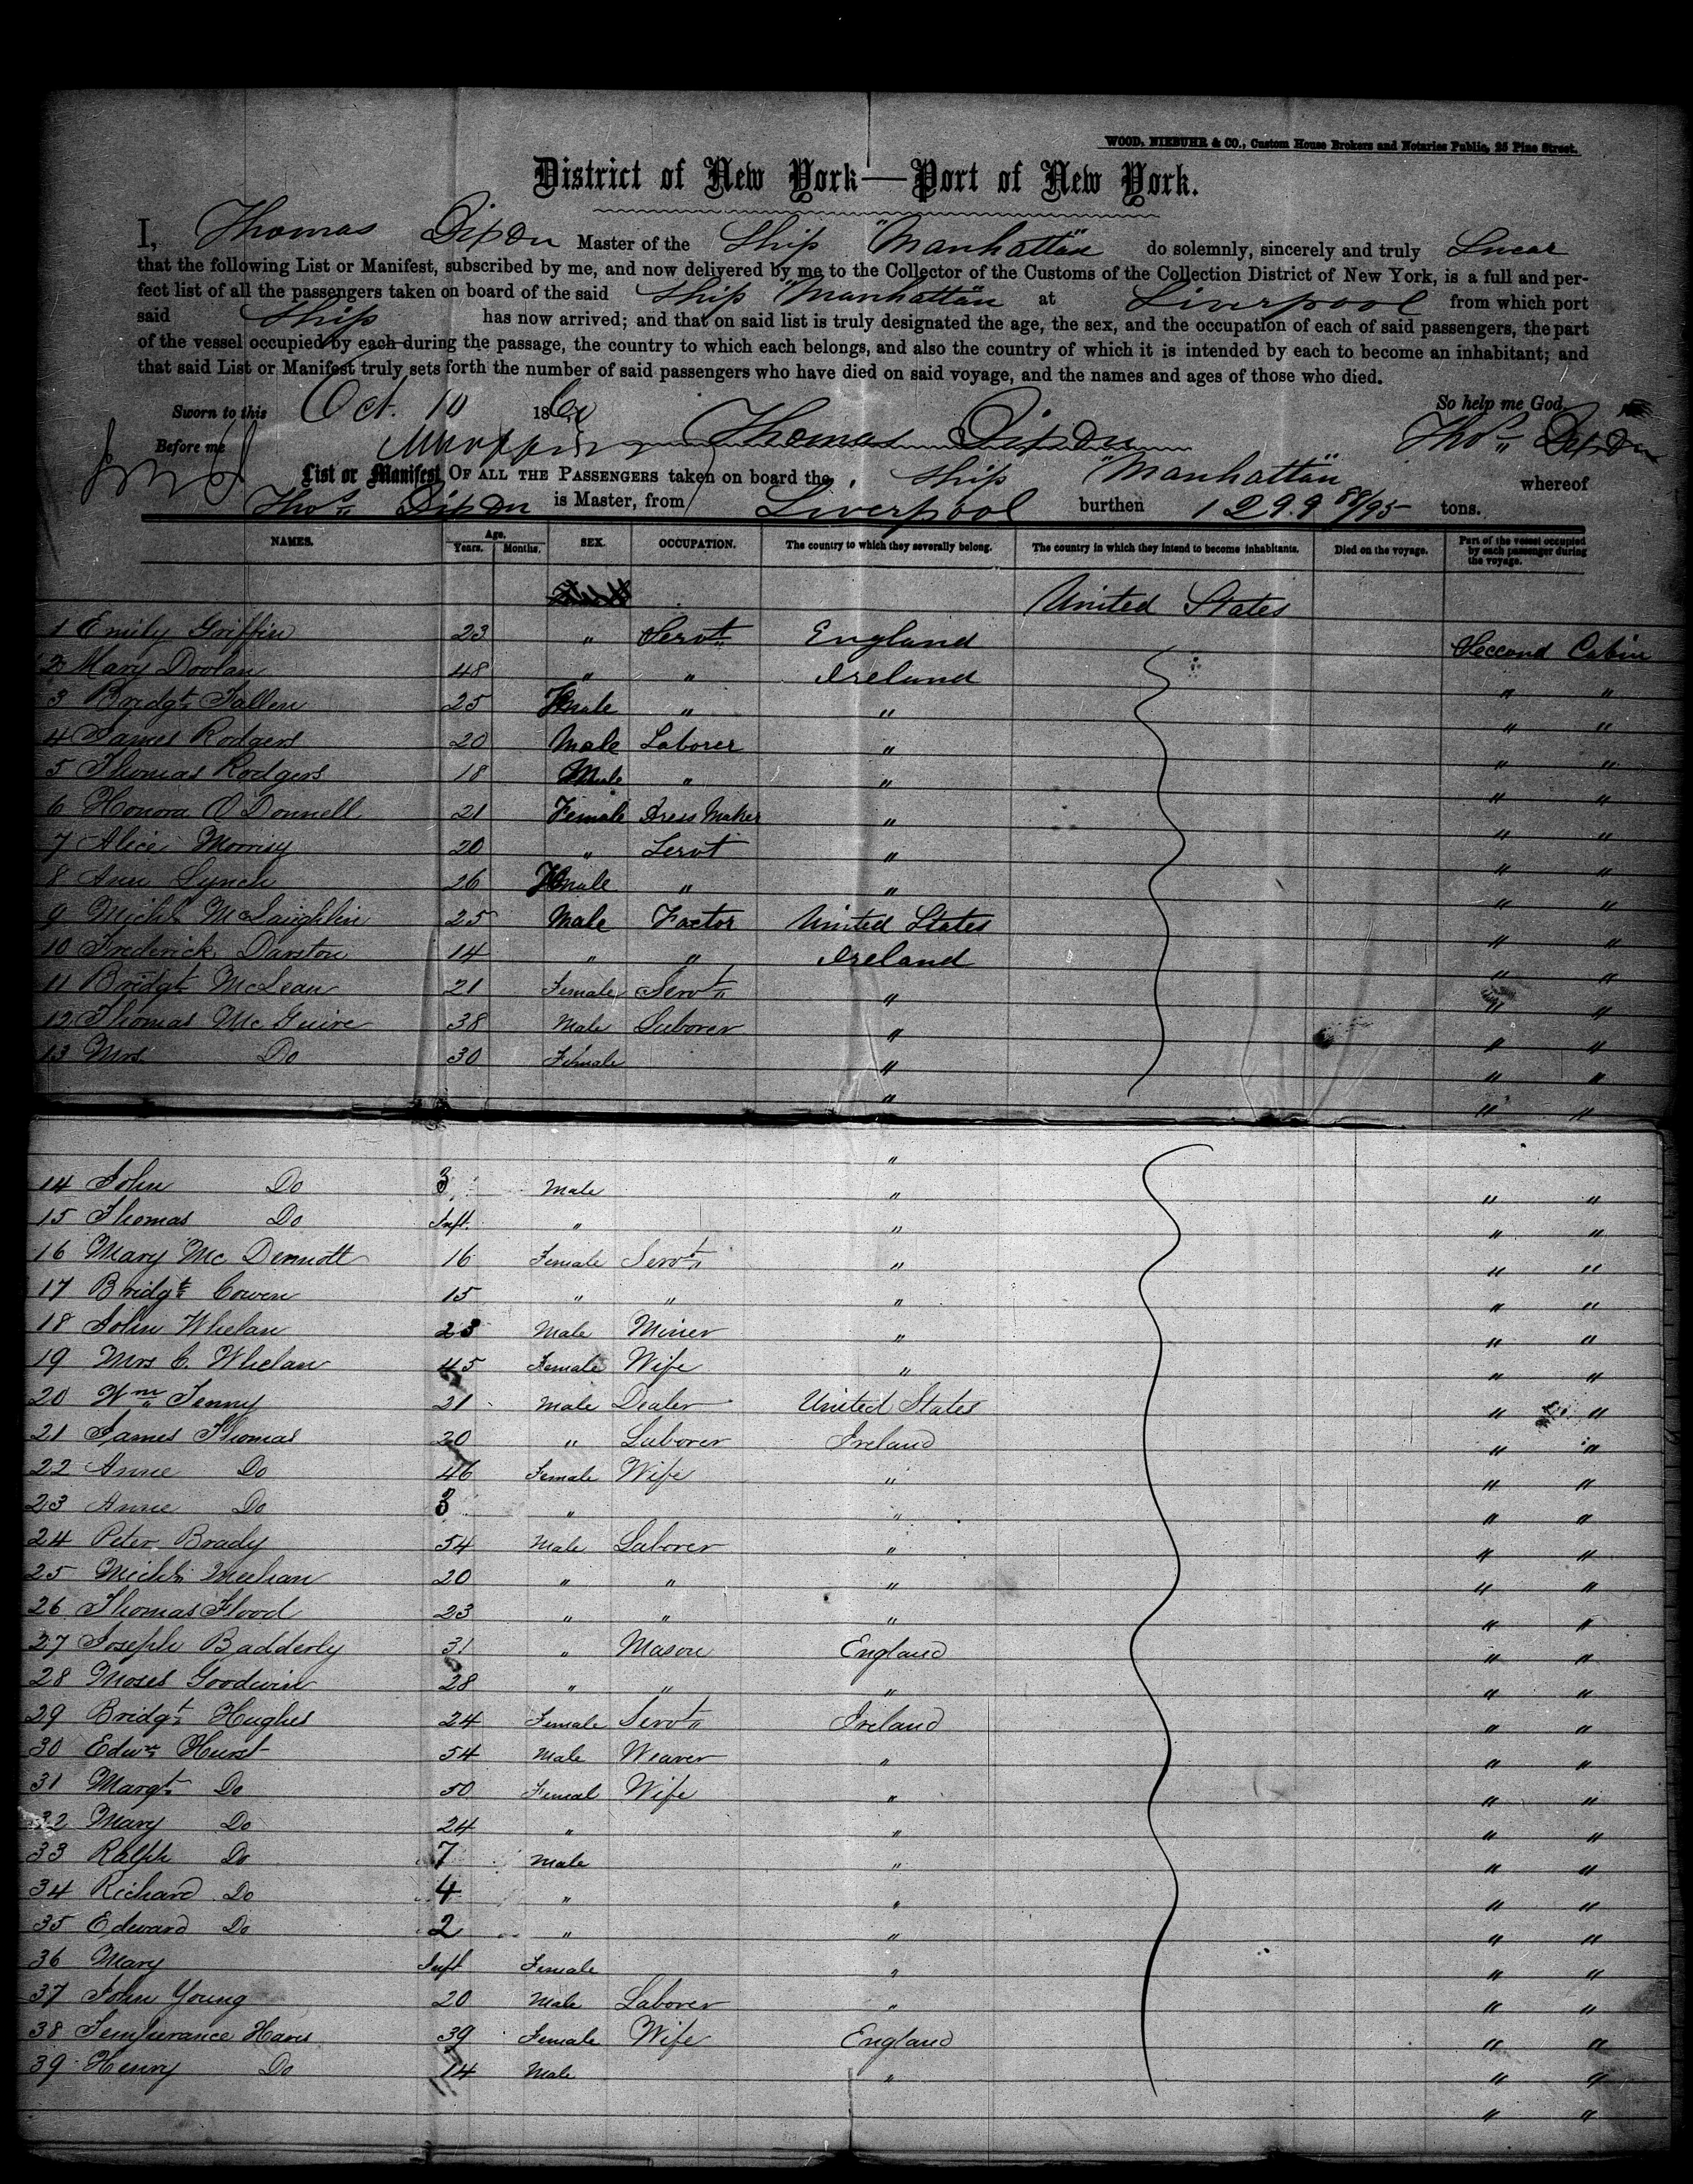 WOOD, NIEBUHR & CO., Custom House Brokers and Notaries Public, 25 Pine Street.
District of New York—Port of New York.
I, Thomas Dixon Master of the Ship "Manhattan" do solemnly, sincerely and truly Swear
that the following List or Manifest, subscribed by me, and now delivered by me to the Collector of the Customs of the Collection District of New York, is a full and per-
fect list of all the passengers taken on board of the said Ship "Manhattan" at Liverpool from which port
said Ship has now arrived; and that on said list is truly designated the age, the sex, and the occupation of each of said passengers, the part
of the vessel occupied by each during the passage, the country to which each belongs, and also the country of which it is intended by each to become an inhabitant; and
that said List or Manifest truly sets forth the number of said passengers who have died on said voyage, and the names and ages of those who died.
Sworn to this Oct. 10 186 So help me God.
Before me Thomas Dixon Thos Dixon
List or Manifest OF ALL THE PASSENGERS taken on board the Ship "Manhattan" whereof
Thos Dixon is Master, from Liverpool burthen 1299 88/95 tons.
NAMES. Age. Years. Months. SEX. OCCUPATION. The country to which they severally belong. The country in which they intend to become inhabitants. Died on the voyage. Part of the vessel occupied by each passenger during the voyage.
United States
1 Emily Griffin 23 " Servt England Second Cabin
2 Mary Doolan 48 " " Ireland " "
3 Bridgt Fallen 25 Female " " " "
4 James Rodgers 20 Male Laborer " " "
5 Thomas Rodgers 18 Male " " " "
6 Honora O'Donnell 21 Female Dress Maker " " "
7 Alice Morrisy 20 " Servt " " "
8 Ann Lynch 26 Female " " " "
9 Michl McLaughlin 25 Male Factor United States " "
10 Frederick Darston 14 " " Ireland " "
11 Bridgt McLean 21 Female Servt " " "
12 Thomas McGuire 38 Male Laborer " " "
13 Mrs Do 30 Female " " "
" " "
"
14 John Do 3 Male " " "
15 Thomas Do Inft. " " " "
16 Mary McDermott 16 Female Servt " " "
17 Bridgt Cowen 15 " " " " "
18 John Whelan 23 Male Miner " " "
19 Mrs C. Whelan 45 Female Wife " " "
20 Wm Tenny 21 Male Dealer United States " "
21 James Thomas 20 " Laborer Ireland " "
22 Anne Do 46 Female Wife " " "
23 Anne Do 3 " " " "
24 Peter Brady 54 Male Laborer " " "
25 Michl Meehan 20 " " " " "
26 Thomas Flood 23 " " " " "
27 Joseph Badderly 31 " Mason England " "
28 Moses Goodwin 28 " " " " "
29 Bridgt Hughes 24 Female Servt Ireland " "
30 Edwd Hurst 54 Male Weaver " " "
31 Margt Do 50 Femal Wife " " "
32 Mary Do 24 " " " "
33 Ralph Do 7 Male " " "
34 Richard Do 4 " " " "
35 Edward Do 2 " " " "
36 Mary Inft Female " " "
37 John Young 20 Male Laborer " " "
38 Temperance Haves 39 Female Wife England " "
39 Henry Do 14 Male " " "
" "